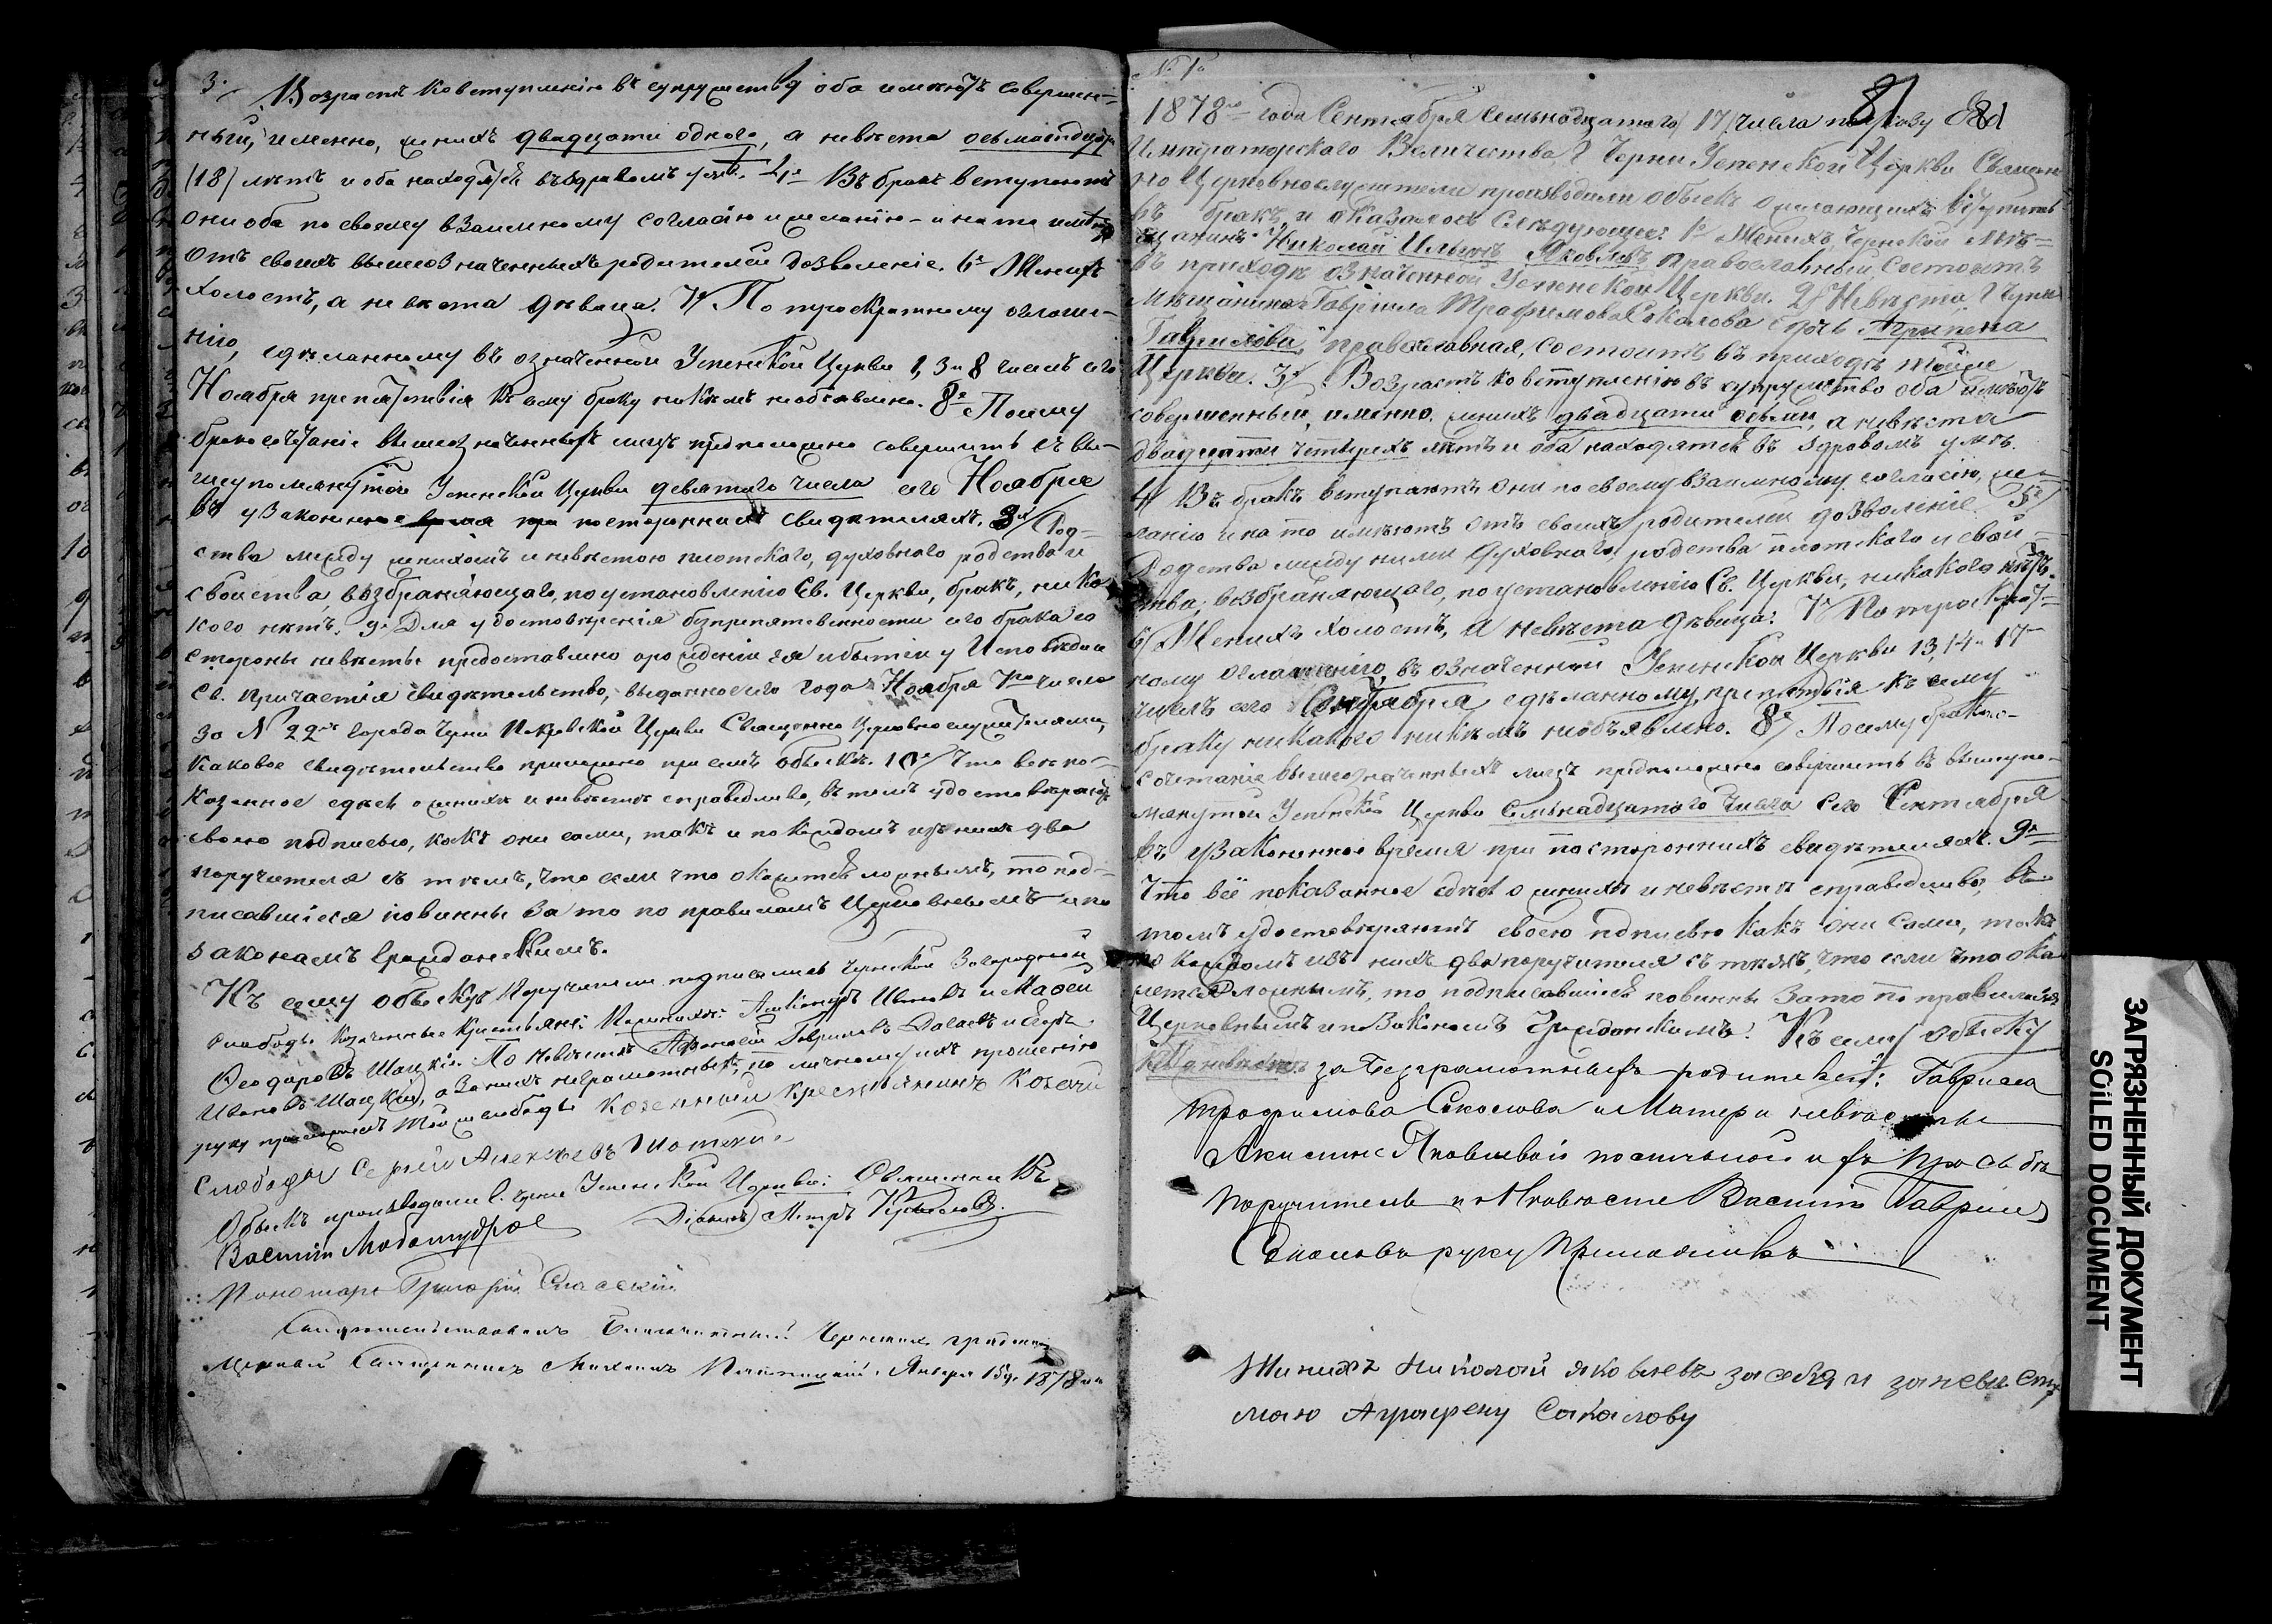 3. Возрастъ ко вступленію въ супружество оба имѣютъ совершен-
ный, именно, женихъ двадцати одного, а невѣста осьмнадцати
(18) лѣтъ и оба находятся въ здравомъ умѣ. 4е Въ бракъ вступаютъ
они оба по своему взаимному согласію и желанію - и на то имѣютъ
отъ своихъ вышеозначенныхъ родителей дозволеніе. 6е Женихъ
холостъ, а невѣста дѣвица. 7е По троекратному оглаше-
нію, сдѣланному въ означенной Успенской Церкви 1, 3 и 8 числъ сего
Ноября препятствія къ сему браку никѣмъ необъявлено. 8е Посему
бракосочетаніе вышеозначенныхъ лицъ предположено совершить въ вы-
шеупомянутой Успенской Церкви девятаго числа сего Ноября
въ узаконенное время при постороннихъ свидѣтеляхъ. Род-
ства между женихомъ и невѣстою плотскаго, духовнаго родства и
свойства, возбраняющаго, по установленію Св. Церкви, бракъ, ника-
кого нѣтъ. 9е Для удостовѣренія безпрепятственности сего брака со
стороны невѣсты предоставлено о рожденіи ея и бытіи у Исповѣди и
Св. Причастія свидѣтельство, выданное сего года Ноября 7го числа
за № 22мъ города Черни Покровской Церкви Священно Церковнослужителями,
каковое свидѣтельство приложено при семъ обыскѣ. 10е Что все по-
казанное здѣсь о женихѣ и невѣстѣ справедливо, въ томъ удостовѣряютъ
своею подписью, какъ они сами, такъ и по каждомъ изъ нихъ два
поручителя съ тѣмъ, что если что окажется ложнымъ, то под-
писавшіеся повинны за то по правиламъ Церковнымъ и по
законамъ Гражданскимъ.
Къ сему обыску Поручители подписались Чернской Загородной
слободы Казенные Крестьяне: По женихѣ: Ивановъ и
Ѳеодоровъ Шацкій. По невѣстѣ Гавриловъ и Егоръ
Ивановъ Шацкій, а за нихъ неграмотныхъ, по личному ихъ прошенію
руку приложилъ той же слободы казенный крестьянинъ Козачей
слободы Сергѣй Алексѣевъ
Обыскъ производили г. Черни Успенской Церкви: Священникъ
Василій Любомудровъ Діаконъ Петръ
Пономарь Григорій Спасскій
Свидѣтельствовалъ Благочинный Чернскихъ градскихъ
церквей Священникъ Михаилъ Января 15 д. 1878 года
№ 1й
81
1878го года Сентября Семьнадцатаго 17 числа по указу Его
Императорскаго Величества, г. Черни Успенской Церкви Священ-
но Церковнослужители производили обыскъ о желающихъ вступить
въ бракъ и оказалось слѣдующее: 1е Женихъ, Чернской мѣ-
щанинъ Николай Ильинъ Яковлевъ православный, состоитъ
въ приходѣ означенной Успенской Церкви. 2е Невѣста, г. Черни
мѣщанина Гавріила Трофимова Соколова дочь Агрипена
Гавриилова, православная, состоитъ въ приходѣ той же
Церкви. 3е Возрастъ ко вступленію въ супружество оба имѣютъ
совершенный, именно: женихъ двадцати осьми, а невѣста
двадцати четырехъ лѣтъ и оба находятся въ здравомъ умѣ.
4/ Въ бракъ вступаютъ они по своему взаимному согласію, же-
ланію и на то имѣютъ отъ своихъ родителей дозволеніе. 5е/
Родства между ними духовнаго, родства плотскаго и свой-
ства, возбраняющаго, по установленію Св. Церкви, никакого нѣтъ.
6/ Женихъ холостъ, а невѣста дѣвица. 7е По троекрат-
ному оглашенію, въ означенной Успенской Церкви 13, 14 и 17го
числъ сего Сентября сдѣланному, препятствія къ сему
браку никакого никѣмъ необъявлено. 8е/ Посему брако-
сочетаніе вышеозначенныхъ лицъ предположено совершить въ вышеупо-
мянутой Успенской Церкви Семьнадцатаго числа сего Сентября
въ узаконенное время при постороннихъ свидѣтеляхъ. 9е
Что всё показанное здѣсь о женихѣ и невѣстѣ справедливо, въ
томъ удостовѣряютъ своею подписью какъ они сами, такъ
по каждомъ изъ нихъ два поручителя съ тѣмъ, что если что ока-
жется ложнымъ, то подписавшіеся повинны за то по правиламъ
Церковнымъ и по Законамъ Гражданскимъ. Къ сему обыску
за безграмотныхъ родителей: Гаврила
Трофимова Соколова и Матери невѣсты
Акилины Яковлевой по личной ихъ просьбѣ
поручитель по невѣсте Василій Гавриловъ
Соколовъ руку приложилъ
Женихъ Николай Яковлевъ за себя и за невесту
мою Аграфену Сакалову
ЗАГРЯЗНЕННЫЙ ДОКУМЕНТ
SOILED DOCUMENT